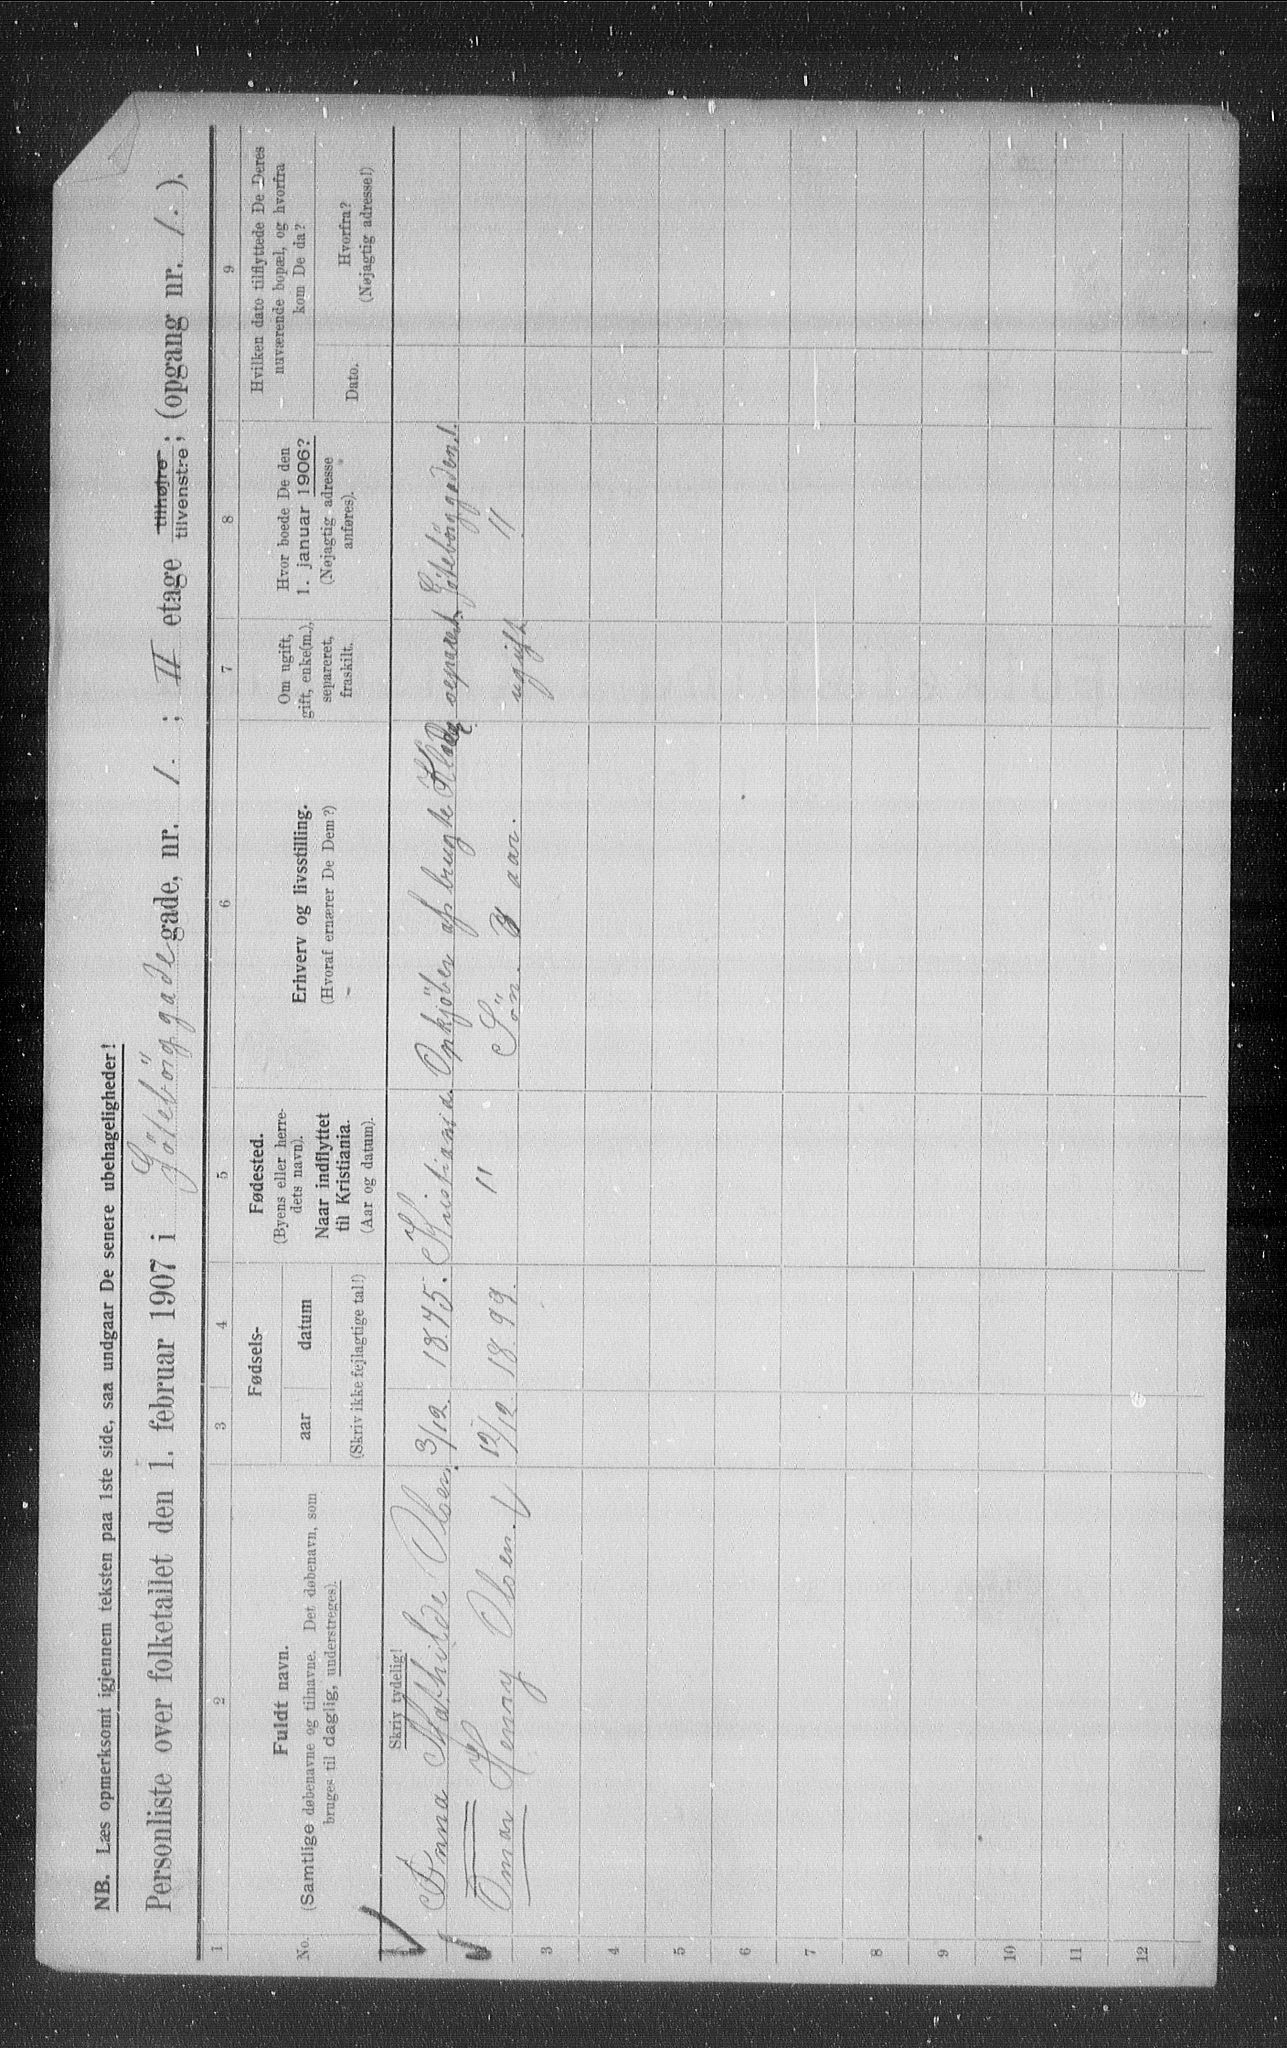 NB. Læs opmerksomt igjennem teksten paa 1ste side, saa undgaar De senere ubehageligheder!
Personliste over folketallet den 1. februar 1907 i Göteborggade gade, nr. 1. ; II etage tilhøire, tilvenstre, (opgang nr. 1. ).
1 2 3 4 5 6 7 8 9
No.
Fuldt navn.
(Samtlige døbenavne og tilnavne. Det døbenavn, som
bruges til daglig, understreges).
Fødsels-
aar datum
(Skriv ikke fejlagtige tal!)
Fødested.
(Byens eller herre-
dets navn).
Naar indflyttet
til Kristiania.
(Aar og datum).
Erhverv og livsstilling.
(Hvoraf ernærer De Dem?)
Om ugift,
gift, enke(m.),
separeret,
fraskilt.
Hvor boede De den
1. januar 1906?
(Nøjagtig adresse
anføres).
Hvilken dato tilflyttede De Deres
nuværende bopæl, og hvorfra
kom De da?
Dato.
Hvorfra?
(Nøjagtig adresse!)
Skriv tydelig!
Anna Mathilde Olsen. 3/12 1875. Kristiania. Opkjöber af brugte Klæder separert. Göteborggaden 1.
Omar Henry Olsen. 12/12 1899. " Sön. aar. ugift "
3
4
5
6
7
8
9
10
11
12